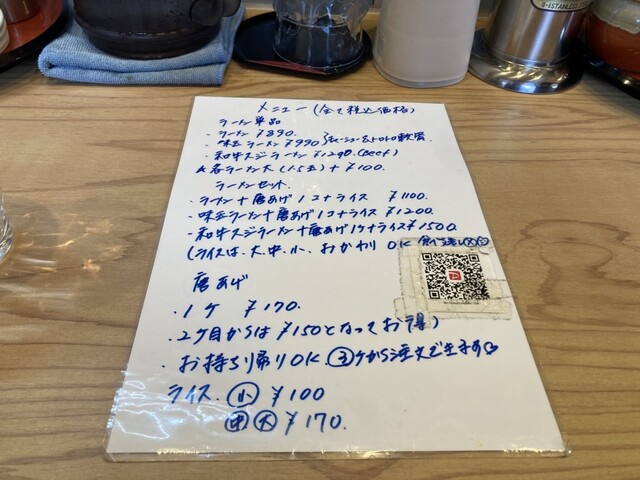 メニュー(全て税込価格)
ラーメン単品
・ラーメン ¥890.
・味玉ラーメン ¥990 }チャーシュー&トロトロ軟骨.
・和牛スジラーメン ¥1290.(Beef)
☆各ラーメン大(1.5玉)+¥100.
ラーメンセット.
・ラーメン+唐あげ1コ+ライス ¥1100.
・味玉ラーメン+唐あげ1コ+ライス ¥1200.
・和牛スジラーメン+唐あげ1ケ+ライス¥1500.
(ライスは、大、中、小、おかわりOK
唐あげ
・1ケ ¥170.
・2ケ目からは¥150となってお得)
・お持ち帰りOK ③ケから注文できます
ライス. 小 ¥100
中 大 ¥170.